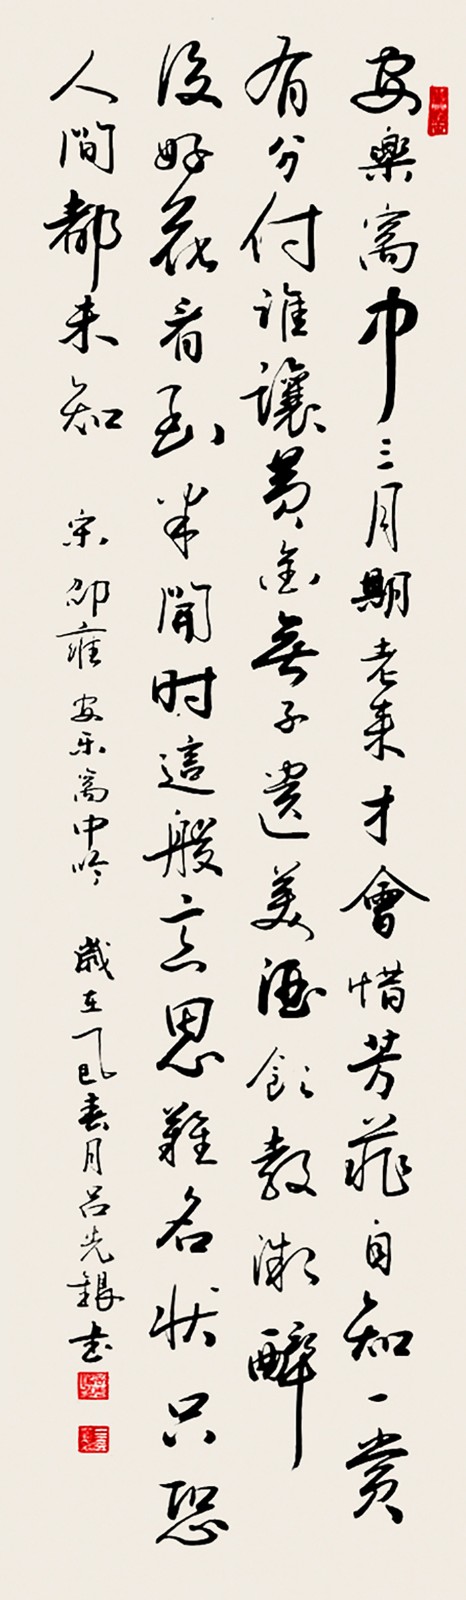 安樂窩中三月期老来才會惜芳菲自知一赏
有分付誰讓黄金無子遺美酒飲教微醉
後好花看到半開时這般意思難名状只恐
人間都未知 宋邵雍安乐窩中吟 歲在乙巳春月吕先銀书